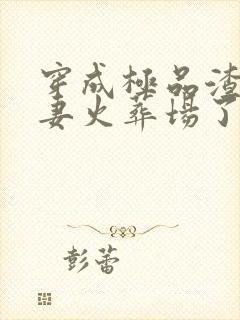 穿成極品渣
妻火葬場了
彭蕾